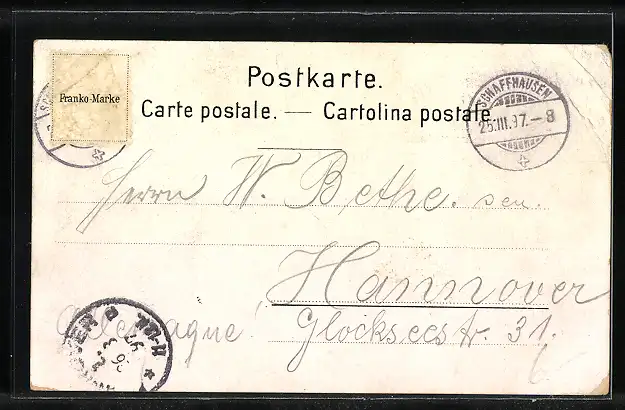 Postkarte.
Franko-Marke
Carte postale. — Cartolina postale.
SCHAFFHAUSEN
25.III.97.–8
Herrn W. Bethe. sen.
Hannover
Allemagne! Glockseestr. 31.